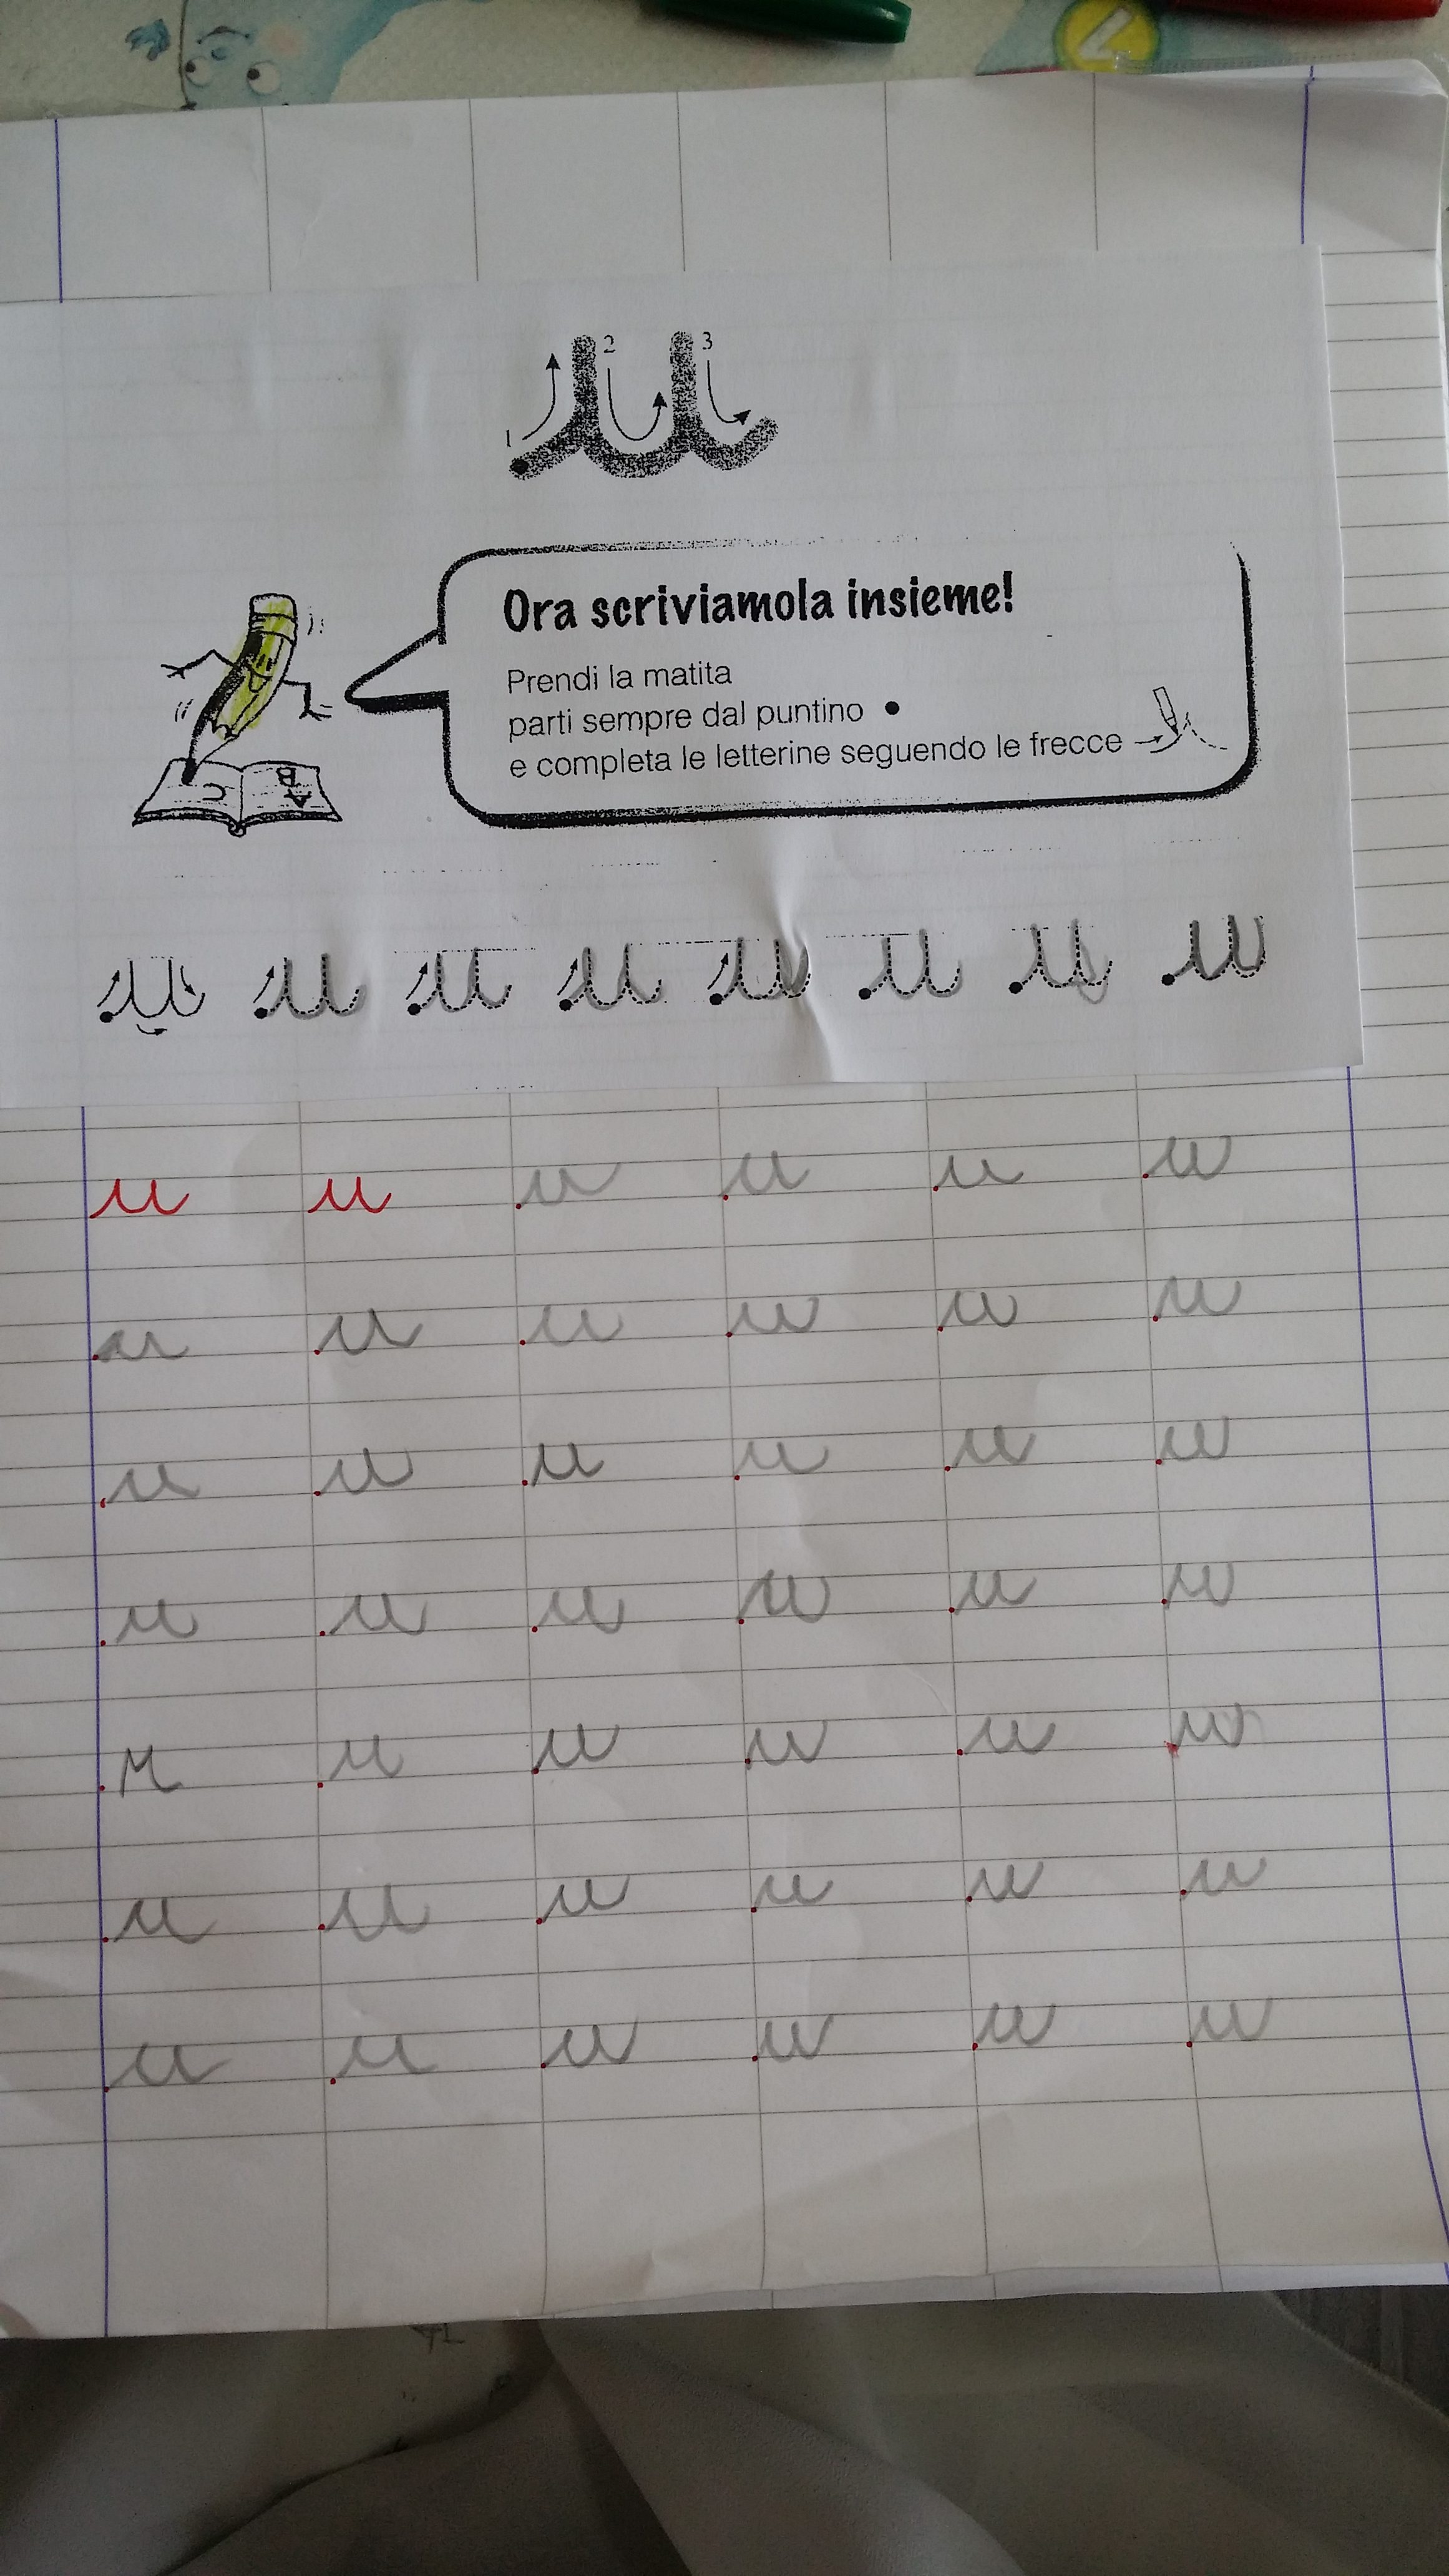 1 2 3
u
Ora scriviamola insieme!
Prendi la matita
parti sempre dal puntino
e completa le letterine seguendo le frecce
C B A
u u u u u u u u
u u u u u u
u u u u u u
u u u u u u
u u u u u u
u u u u u u
u u u u u u
u u u u u u